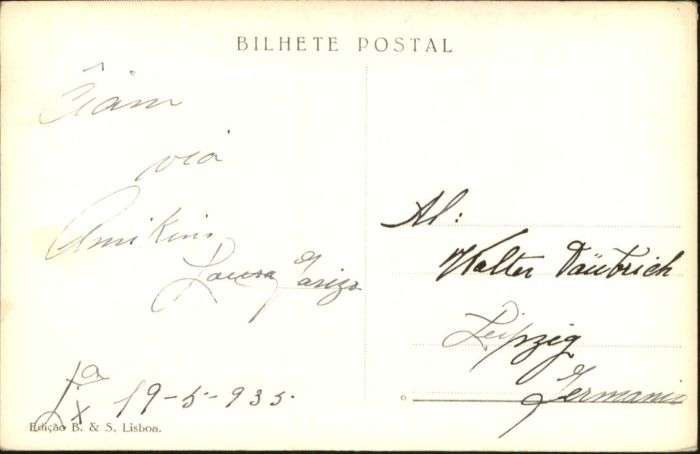 BILHETE POSTAL
Ĉiam
via
Amikino
Laura
Al:
Walter Däubrich
Leipzig
Germanio
Lxa 19-5-935.
Edição B. & S. Lisboa.